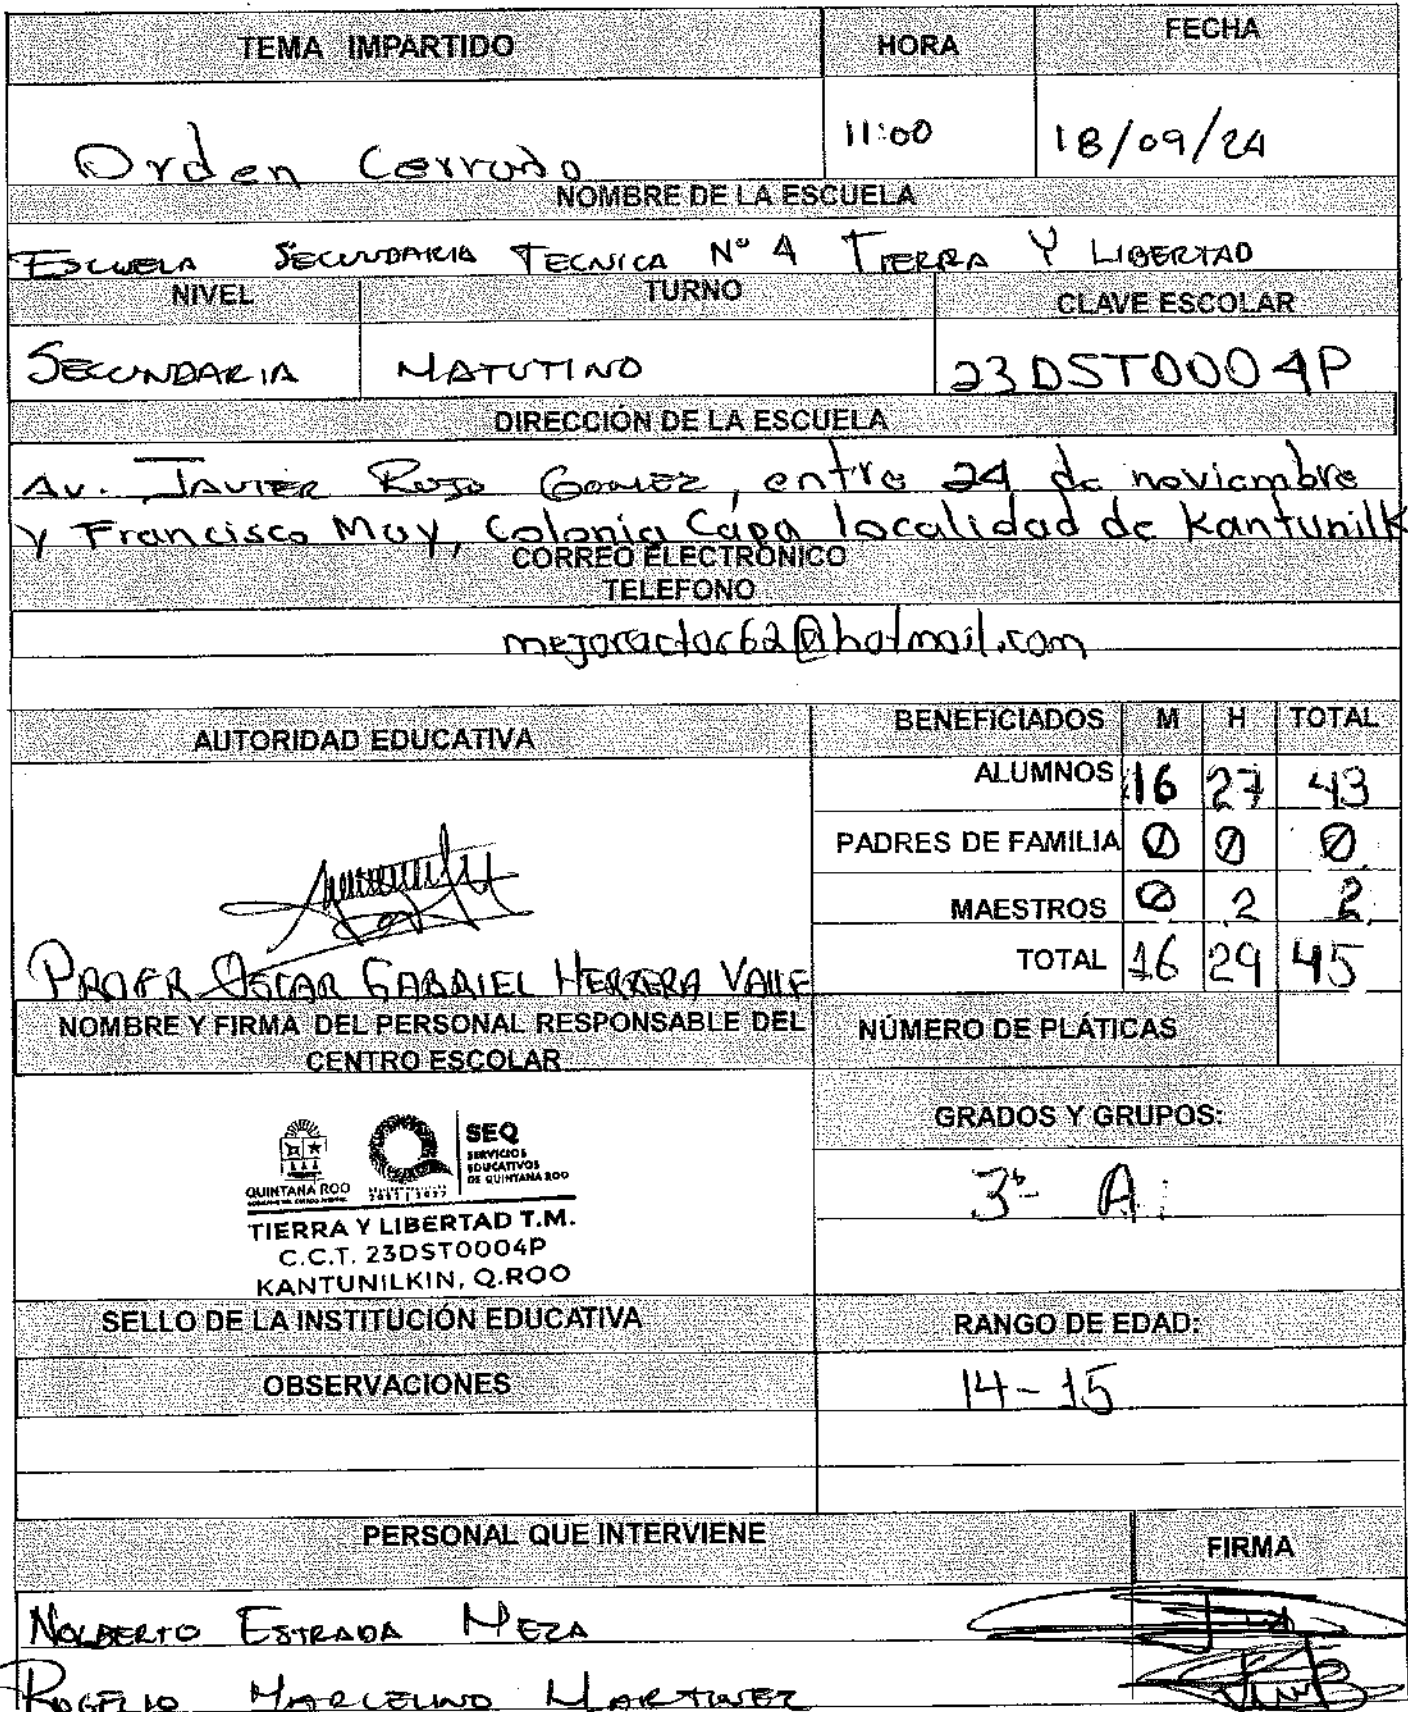 TEMA IMPARTIDO HORA FECHA
Orden Cerrado 11:00 18/09/24
NOMBRE DE LA ESCUELA
ESCUELA SECUNDARIA TECNICA N° 4 TIERRA Y LIBERTAD
NIVEL TURNO CLAVE ESCOLAR
SECUNDARIA MATUTINO 23DST0004P
DIRECCIÓN DE LA ESCUELA
AV. JAVIER ROJO GOMEZ, entre 24 de noviembre
y Francisco May, Colonia Capa localidad de Kantunilk
CORREO ELECTRÓNICO
TELEFONO
mejoractor62@hotmail.com
AUTORIDAD EDUCATIVA BENEFICIADOS M H TOTAL
ALUMNOS 16 27 43
PADRES DE FAMILIA 0 0 0
MAESTROS 0 2 2
PROFR OSCAR GABRIEL HERRERA VALLE TOTAL 16 29 45
NOMBRE Y FIRMA DEL PERSONAL RESPONSABLE DEL
CENTRO ESCOLAR
NÚMERO DE PLÁTICAS
GRADOS Y GRUPOS:
3° A
QUINTANA ROO
2027
SEQ
SERVICIOS
EDUCATIVOS
DE QUINTANA ROO
TIERRA Y LIBERTAD T.M.
C.C.T. 23DST0004P
KANTUNILKIN, Q.ROO
SELLO DE LA INSTITUCIÓN EDUCATIVA RANGO DE EDAD:
OBSERVACIONES 14-15
PERSONAL QUE INTERVIENE FIRMA
NOLBERTO ESTRADA MEZA
ROGELIO MARCELINO MARTINEZ